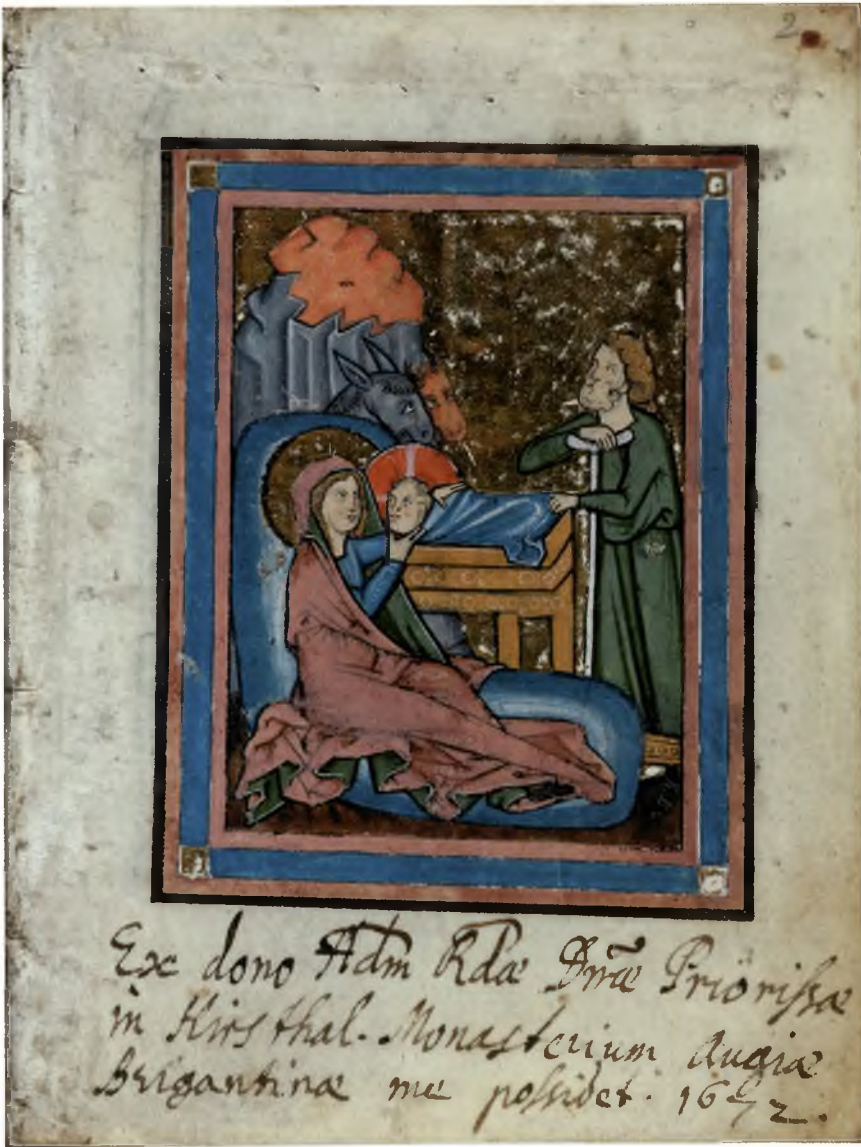 2
Ex dono Adm Rdæ Dnæ Priorissæ
in Hirsthal. Monasterium Augiæ
Brigantinæ me possidet.